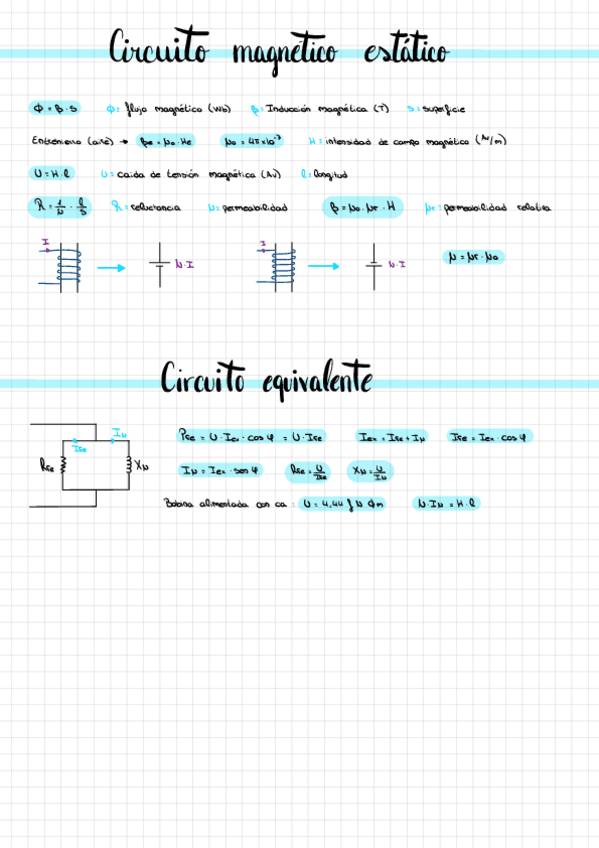 Circuito magnético estático
Φ = β · S Φ = flujo magnético (Wb) β = Inducción magnética (T) S = superficie
Entrehierro (aire) → βe = μo · He μo = 4π×10⁻⁷ H = intensidad de campo magnético (Av/m)
U = H · l U = caida de tensión magnética (Av) l = longitud
R = 1/μ · l/S R = reluctancia μ = permeabilidad β = μo · μr · H μr = permeabilidad relativa
I N·I I N·I μ = μr · μo
Circuito equivalente
PFe = U · Iex · cos φ = U · IFe Iex = IFe + Iμ IFe = Iex · cos φ
Iμ IFe RFe Xμ
Iμ = Iex · sen φ RFe = U/IFe Xμ = U/Iμ
Bobina alimentada con ca : U = 4,44 f N Φm N · Iμ = H · l